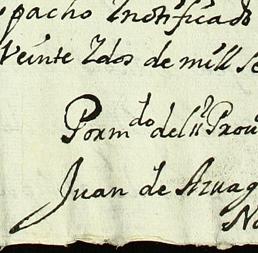 pacho Inotificado
Veinte Zdos de mill Se
Porm.do del S.r Prou
Juan de Azuag
No